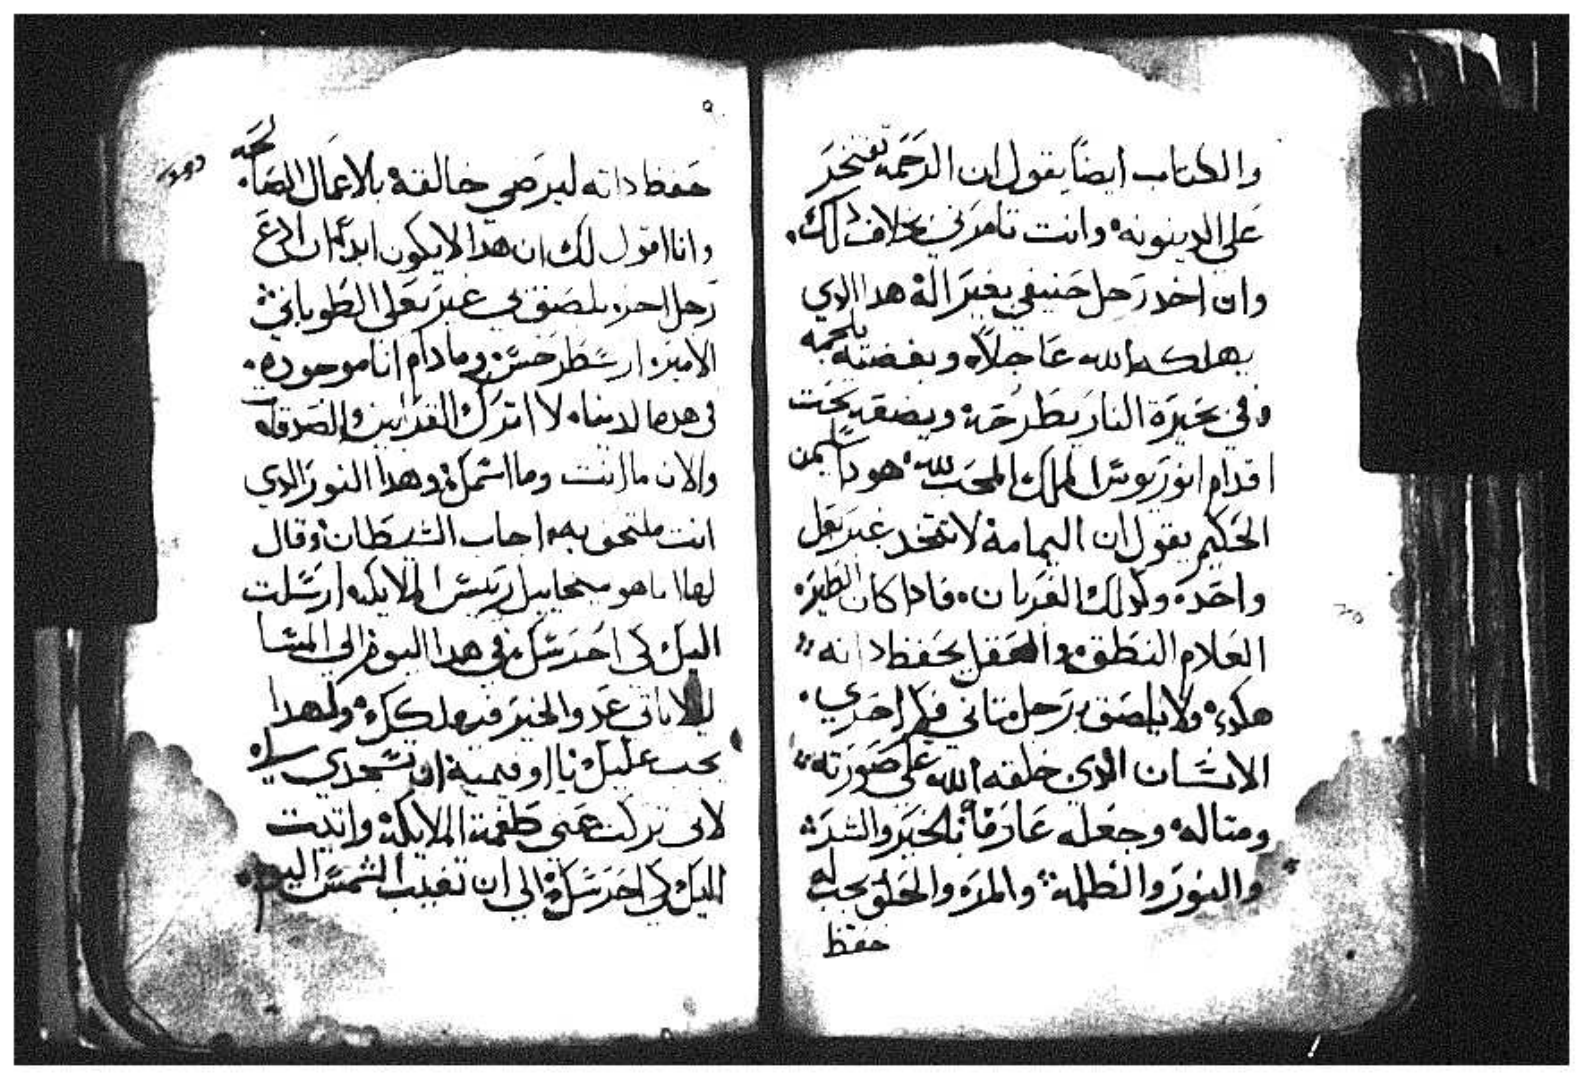 والكتاب ايضاً يقول ان الرحمه تفتخر
على الدينونه وانت تامرني بخلاف ذلك
وان اخد رجل حنيفي بغير اله هدا الدي
يهلكه الله عاجلاً وبغضته بلحمه
وفي بحيرة النار يطرحه ويضعه تحت
اقدام انوريوس الملك المحب لله هودا سليمن
الحكيم يقول ان اليمامه لا تتخد غير بعل
واحده وكدلك الغربان فادا كان الطير
العلام النطق والعقل يحفظ داته
هكدى ولا يلصق برجل تاني فكم احري
الانسان الدي خلقه الله على صورته
ومتاله وجعله عارفاً بالخير والشر
والنور والظلمه والمر والحلو يجب له
حفظ
٩
حفظ داته ليرضي خالقه بالاعمال الصالحه
وانا اقول لك ان هدا لا يكون ابداً ان ادع
رجل اخر يلصق بي غير بعلي الطوباني
الامير ارسطرخس وما دام انا موجوده
في هده الدنيا لا اترك القرابين والصدقات
والان ما انت وما اسمك وهدا النور الدي
انت ملتحف به اجاب الشيطان وقال
لها انا هو ميخاييل رييس الملايكه ارسلت
اليك كي احرسك في هدا اليوم الي المسا
ليلا ياتي عدو الخير فيهلكك ولهدا
يجب عليك يا اوفيميه ان تسجدي لي
لاني تركت عني طغمة الملايكه واتيت
اليك كي احرسك الي ان تغيب الشمس اليوم